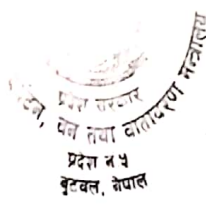 प्रदेश सरकार
वन तथा वातावरण मन्त्रालय
प्रदेश नं ५
बुटवल, नेपाल